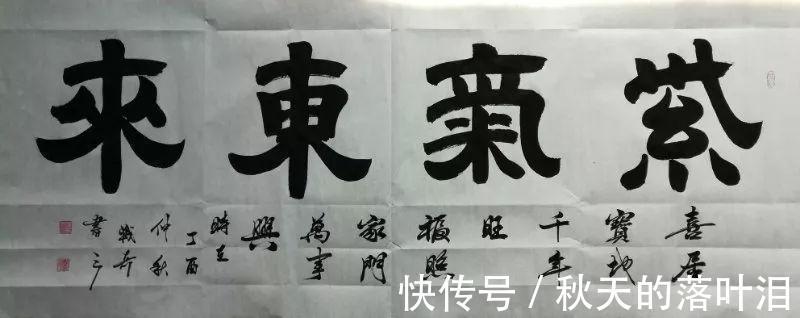 紫氣東來
喜居
寶地
千年
旺
福照
家門
萬事
興
時在
丁酉
仲秋
書
快传号 / 秋天的落叶泪